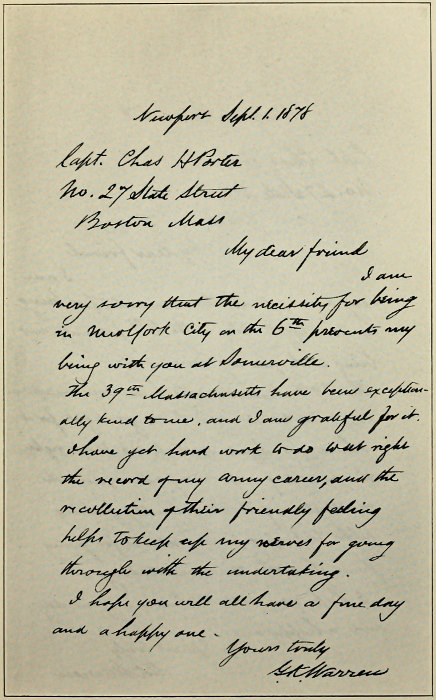 Newport Sept. 1. 1878
Capt. Chas H Porter
No. 27 State Street
Boston Mass
My dear friend
I am
very sorry that the necissity for being
in New York City on the 6th prevents my
being with you at Somerville.
The 39th Massachusetts have been exception-
ally kind to me, and I am grateful for it.
I have yet hard work to do to set right
the record of my army career, and the
recollection of their friendly feeling
helps to keep up my nerves for going
through with the undertaking.
I hope you will all have a fine day
and a happy one.
Yours truly
G.K. Warren